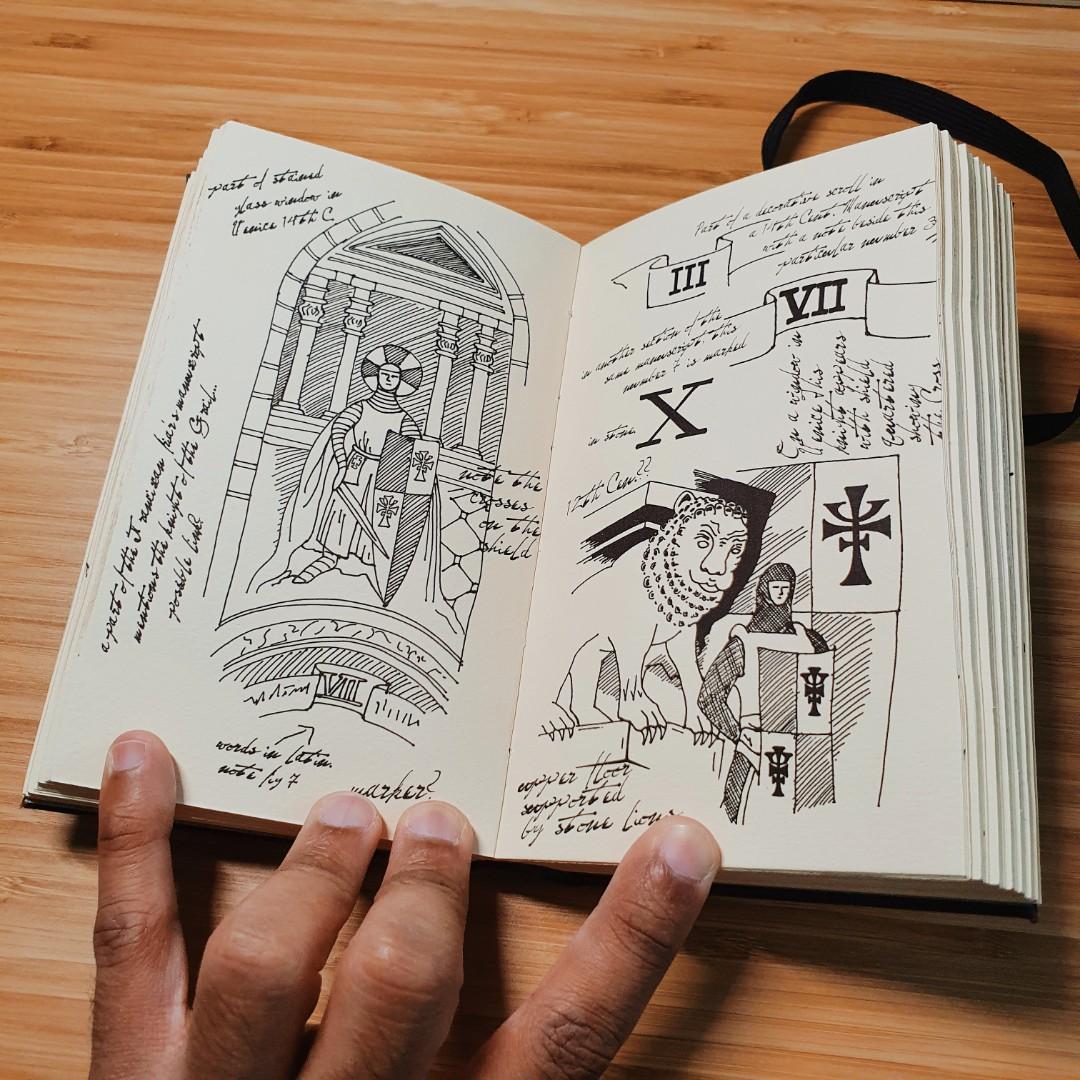 part of stained
glass window in
Venice 14th C.
a part of the
manuscript
mentions the knight of the Grail...
possible link
note the
crosses
on the
shield
VII
words in Latin.
note key 7
marker?
Part of a decorative scroll in
a 14th Cent. Manuscript
with a note beside this
particular number 3
III
VII
in another section of the
same manuscript this
number 7 is marked
in stone
X
On a window in
Venice this
knight appears
with shield
Quartered
showing
the Cross
12th Cen.??
copper floor
supported
by stone lions